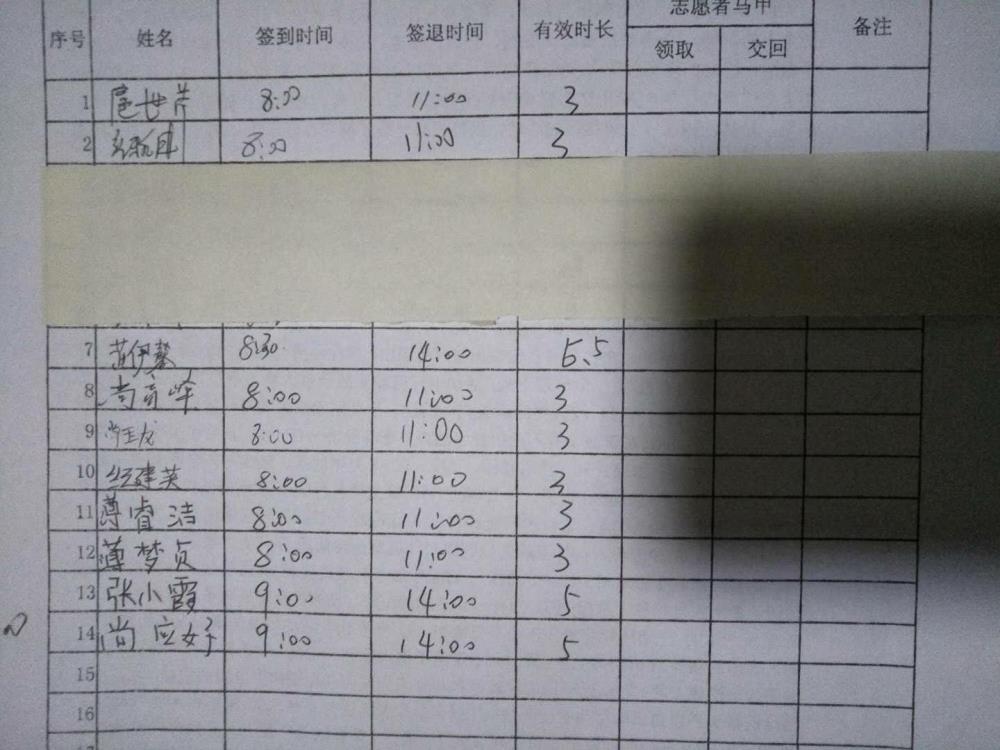 志愿者马甲
序号 姓名 签到时间 签退时间 有效时长 领取 交回 备注
1 8:00 11:00 3
2 8:00 11:00 3
7 范伊馨 8:30 14:00 5.5
8 8:00 11:00 3
9 8:00 11:00 3
10 建英 8:00 11:00 3
11 薄睿洁 8:00 11:00 3
12 薄梦贞 8:00 11:00 3
13 张小霞 9:00 14:00 5
14 尚应好 9:00 14:00 5
15
16